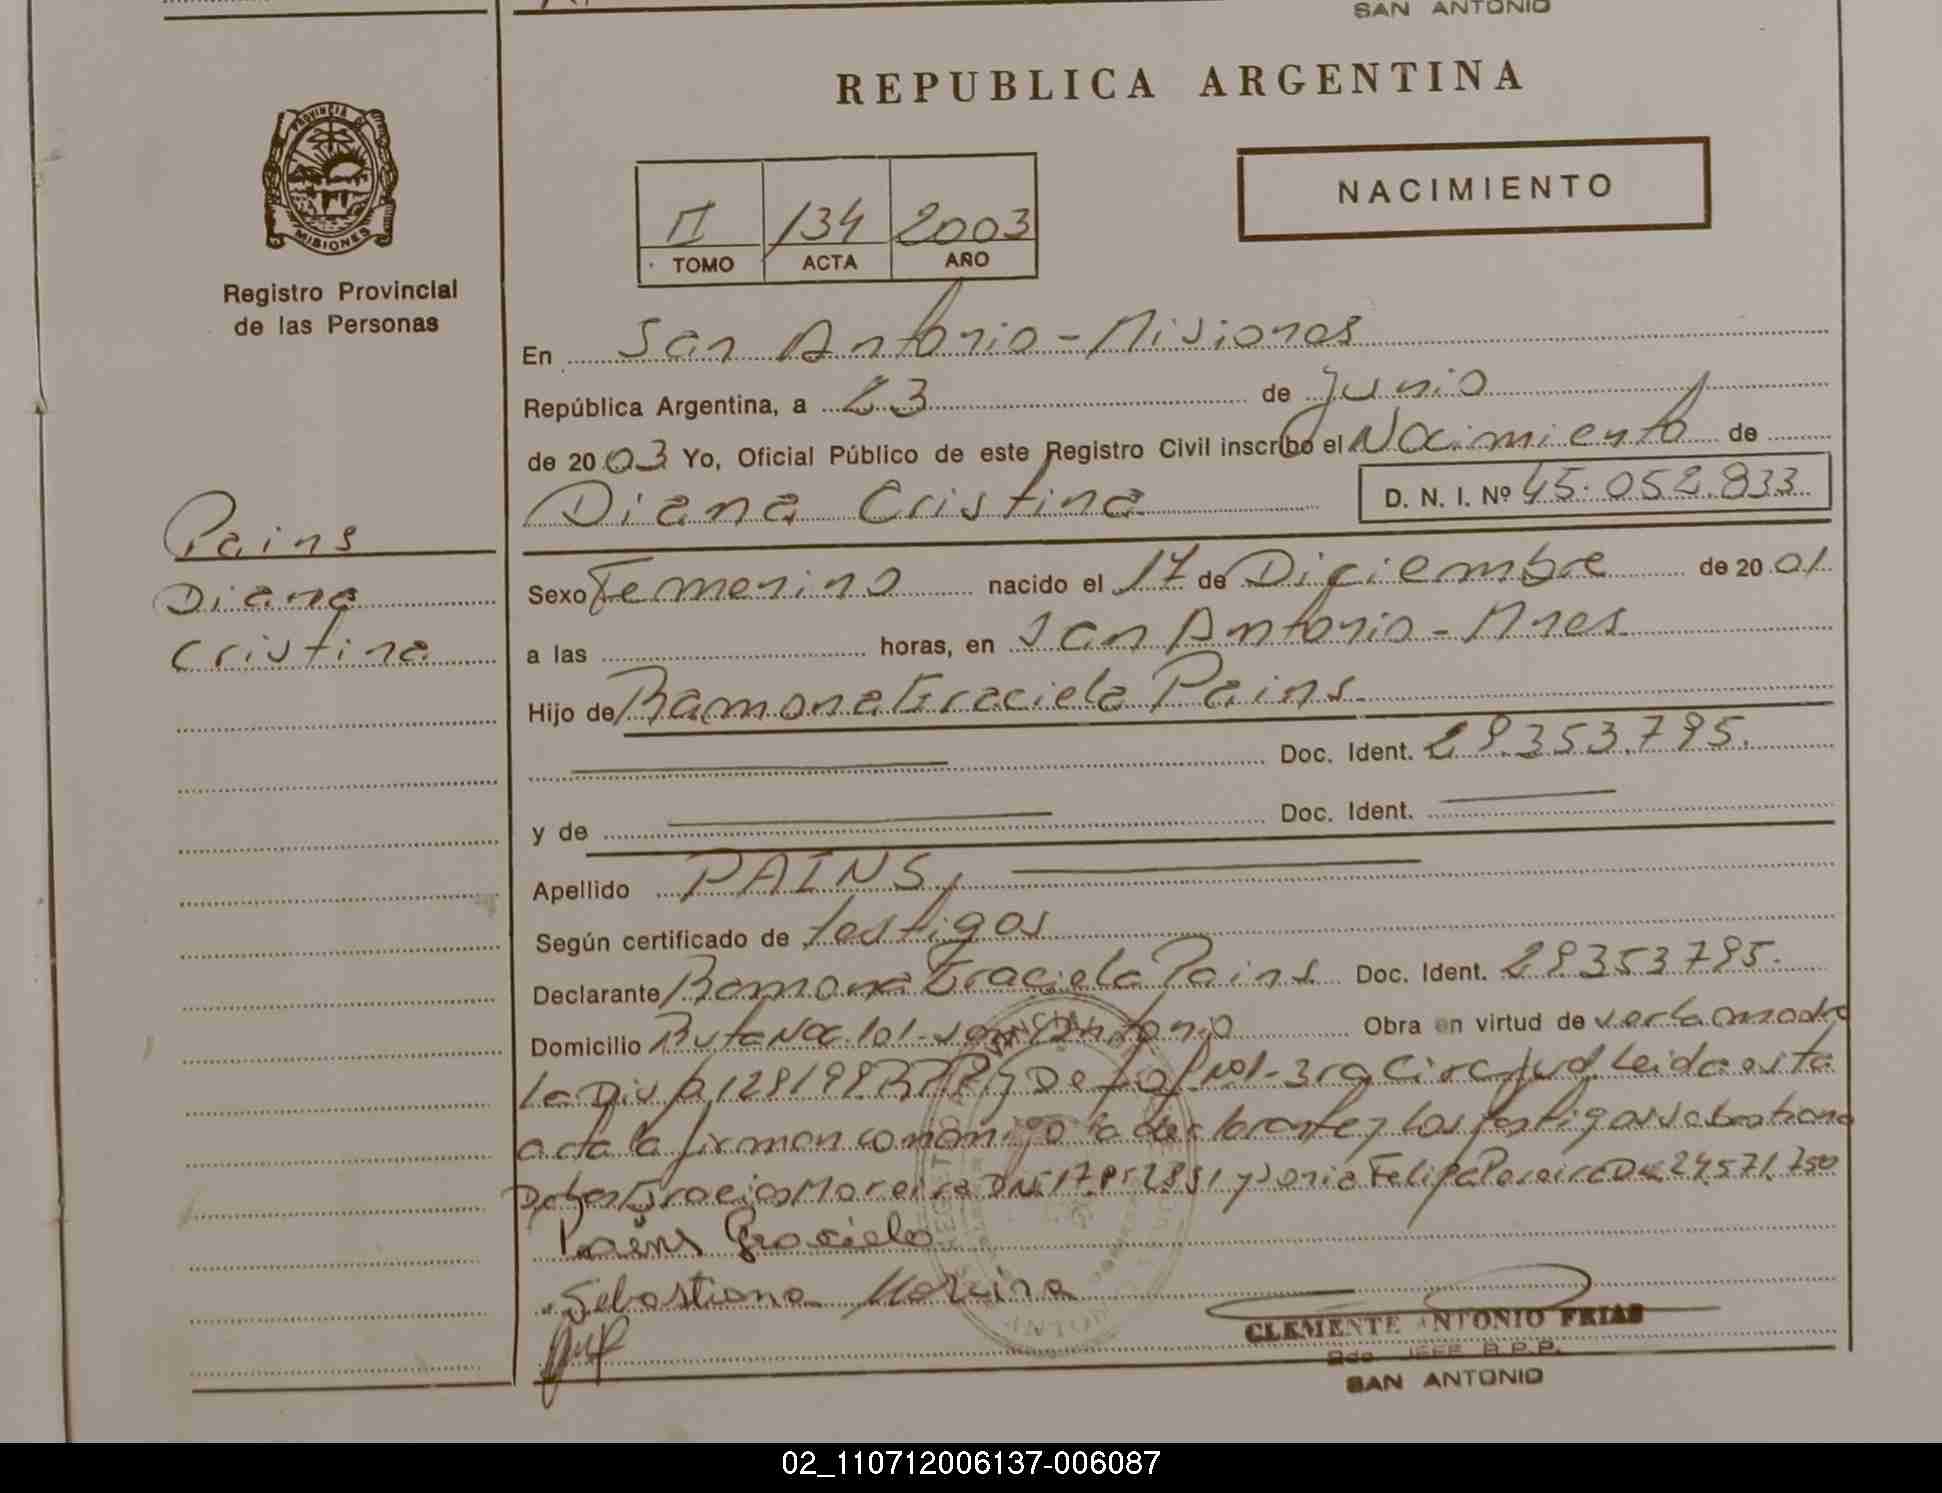 SAN ANTONIO
REPUBLICA ARGENTINA
PROVINCIA DE
MISIONES
Registro Provincial
de las Personas
NACIMIENTO
II 134 2003
TOMO ACTA AÑO
En San Antonio - Misiones
República Argentina, a 23 de Junio
de 2003 Yo, Oficial Público de este Registro Civil inscribo el Nacimiento de
Diana Cristina D. N. I. Nº 45.052.833
Pains
Diana
Cristina
Sexo Femenino nacido el 17 de Diciembre de 2001
a las horas, en San Antonio - Mnes
Hijo de Ramona Graciela Pains
Doc. Ident. 29.353.795.
y de Doc. Ident.
Apellido PAINS,
Según certificado de testigos
Declarante Ramona Graciela Pains Doc. Ident. 29353795.
Domicilio Ruta Nac. 101 - San Antonio Obra en virtud de ser la madre
La 128/98 RPP y De 3ra Circ Jud Leida esta
acta la firman conmigo la declarante y los testigos Sebastiana
Moreira DNI y Felipa Pereira 24.571.750
Pains Graciela
Sebastiana Moreira
CLEMENTE ANTONIO FRIAS
2do JEFE R.P.P.
SAN ANTONIO
02_110712006137-006087